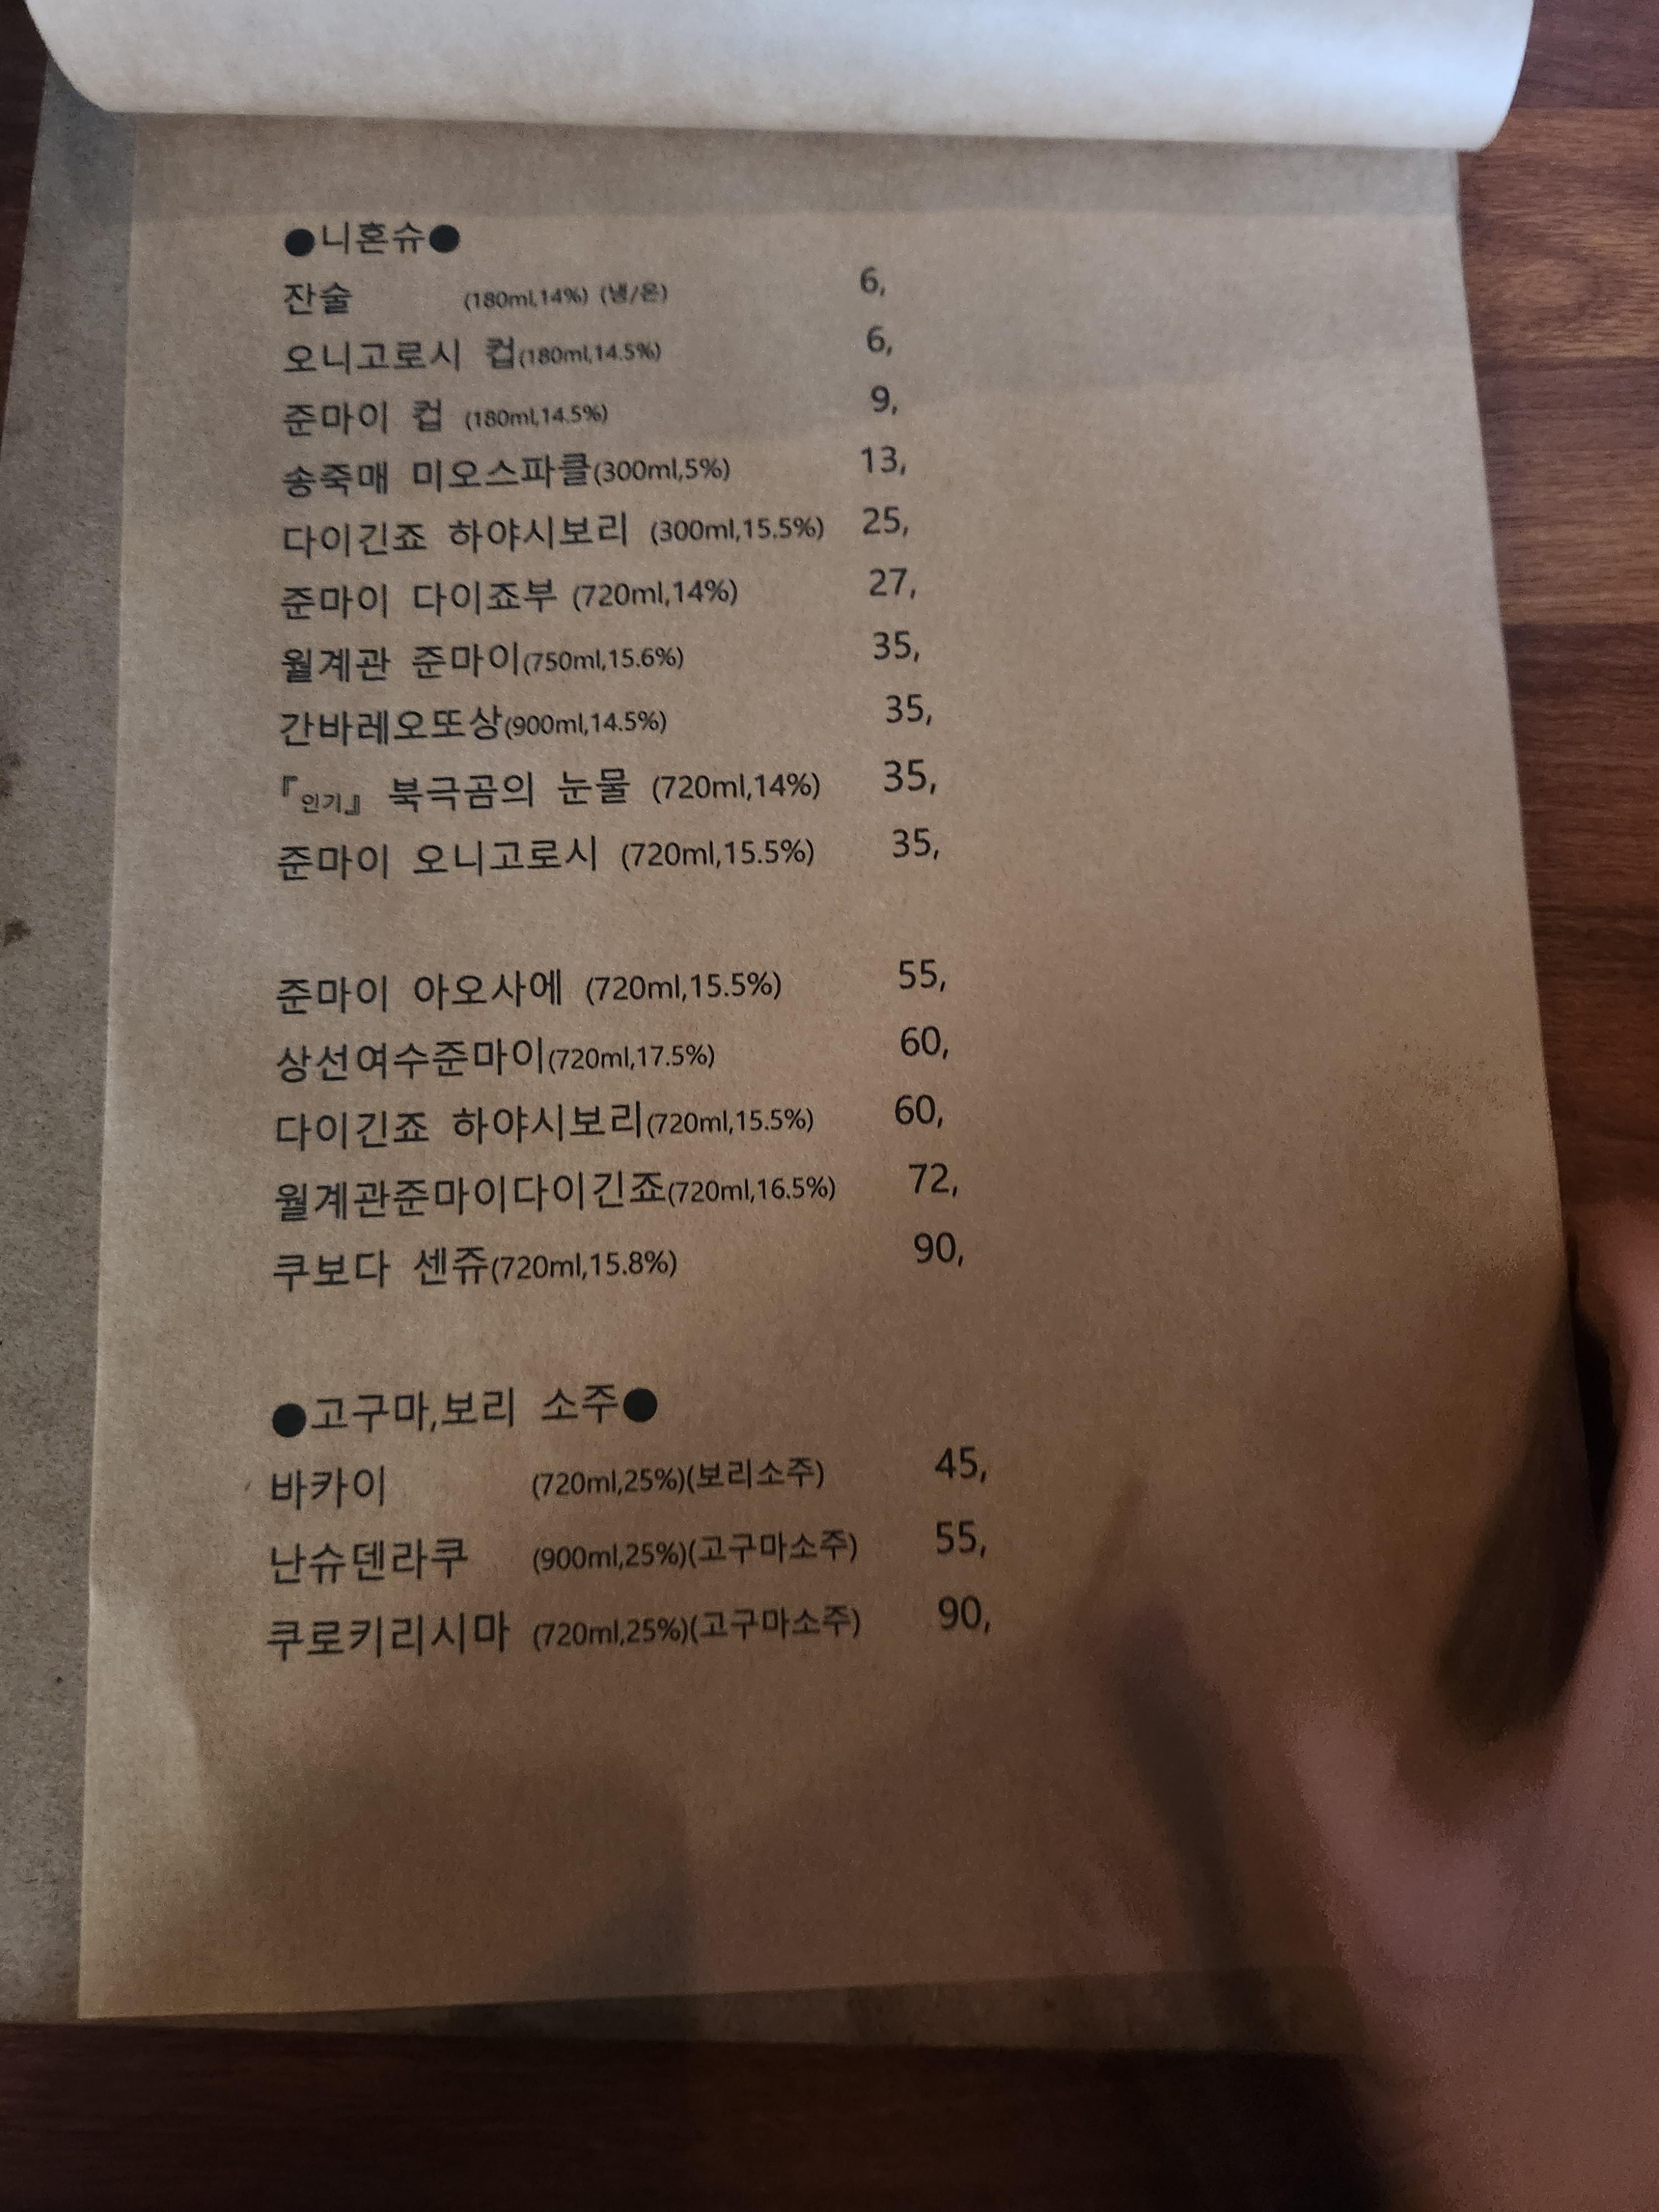 ●니혼슈●
잔술 (180ml,14%) (냉/온) 6,
오니고로시 컵(180ml,14.5%) 6,
준마이 컵 (180ml,14.5%) 9,
송죽매 미오스파클(300ml,5%) 13,
다이긴죠 하야시보리 (300ml,15.5%) 25,
준마이 다이죠부 (720ml,14%) 27,
월계관 준마이(750ml,15.6%) 35,
간바레오또상(900ml,14.5%) 35,
『인기』 북극곰의 눈물 (720ml,14%) 35,
준마이 오니고로시 (720ml,15.5%) 35,
준마이 아오사에 (720ml,15.5%) 55,
상선여수준마이(720ml,17.5%) 60,
다이긴죠 하야시보리(720ml,15.5%) 60,
월계관준마이다이긴죠(720ml,16.5%) 72,
쿠보다 센쥬(720ml,15.8%) 90,
●고구마,보리 소주●
바카이 (720ml,25%)(보리소주) 45,
난슈덴라쿠 (900ml,25%)(고구마소주) 55,
쿠로키리시마 (720ml,25%)(고구마소주) 90,